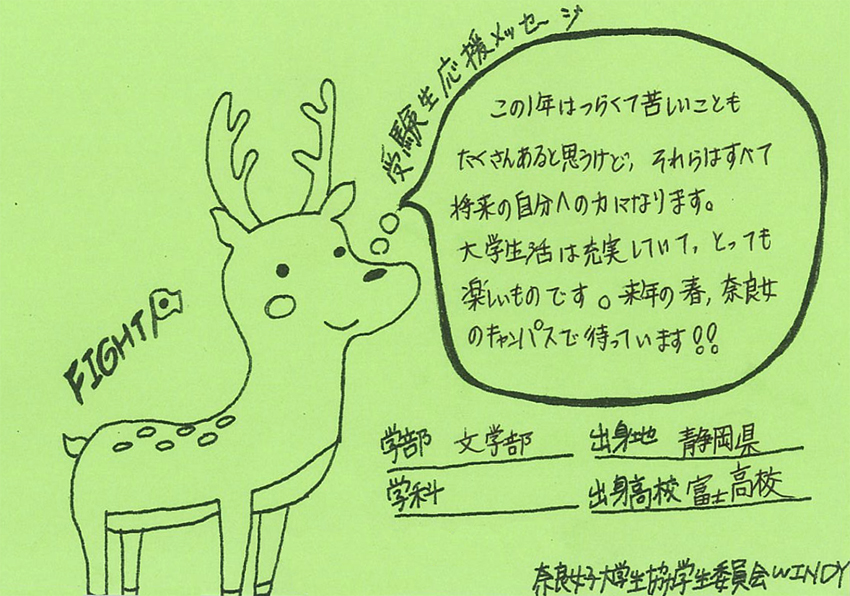 受験生応援メッセージ
この1年はつらくて苦しいことも
たくさんあると思うけど、それらはすべて
将来の自分への力になります。
大学生活は充実していて、とっても
楽しいものです。来年の春、奈良女
のキャンパスで待っています!!
FIGHT
学部 文学部 出身地 静岡県
学科 出身高校 富士高校
奈良女子大学生協学生委員会WINDY